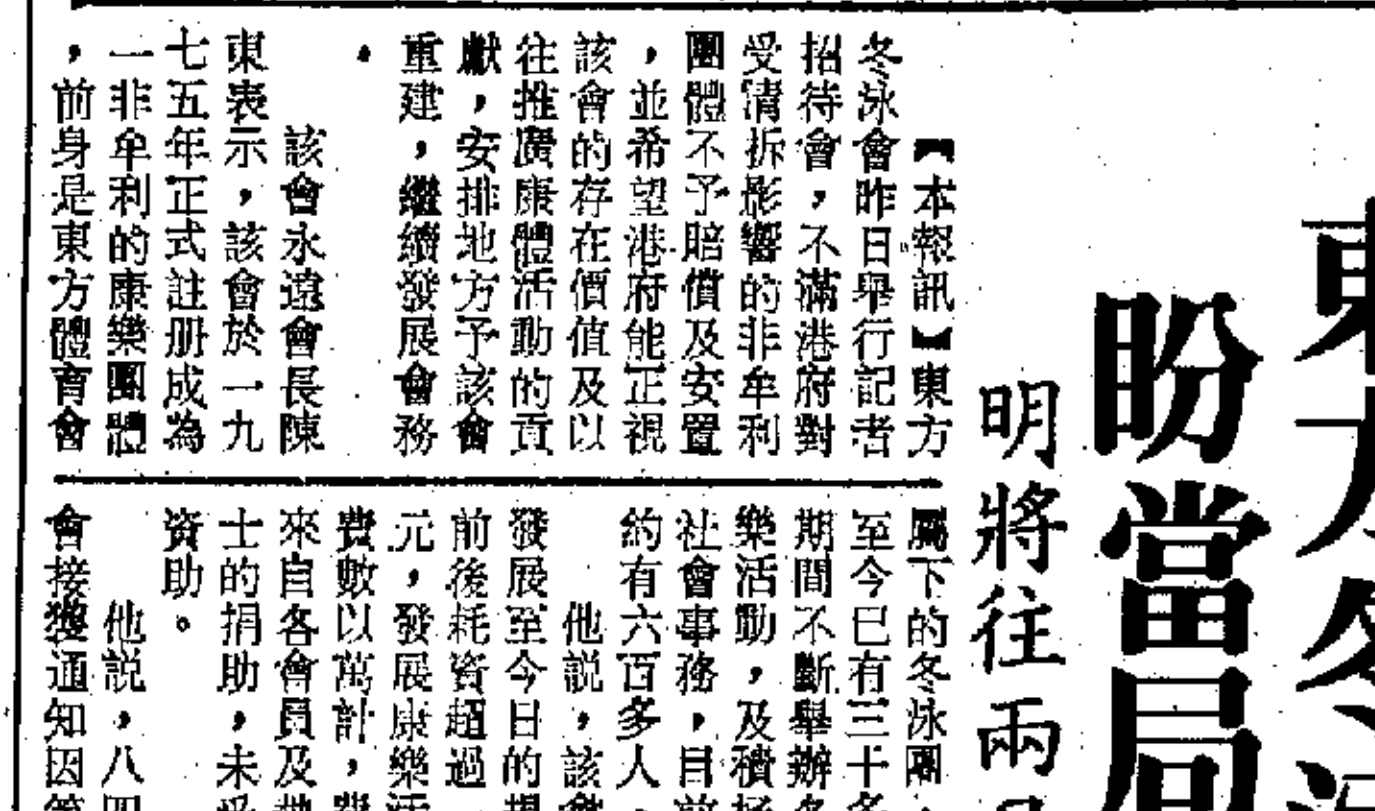 東方冬泳
盼當局
明將往兩
【本報訊】東方
冬泳會昨日舉行記者
招待會，不滿港府對
受清拆影響的非牟利
團體不予賠償及安置
，並希望港府能正視
該會的存在價值及以
往推廣康體活動的貢
獻，安排地方予該會
重建，繼續發展會務
。
該會永遠會長陳
東表示，該會於一九
七五年正式註册成為
一非牟利的康樂團體
，前身是東方體育會
屬下的冬泳團，
至今已有三十多
期間不斷舉辦各
樂活動，及積極
社會事務，目前
約有六百多人，
他説，該會
發展至今日的規
前後耗資超過
元，發展康樂活
費數以萬計，
來自各會員及
士的捐助，未
資助。
他説，八四
會接獲通知因